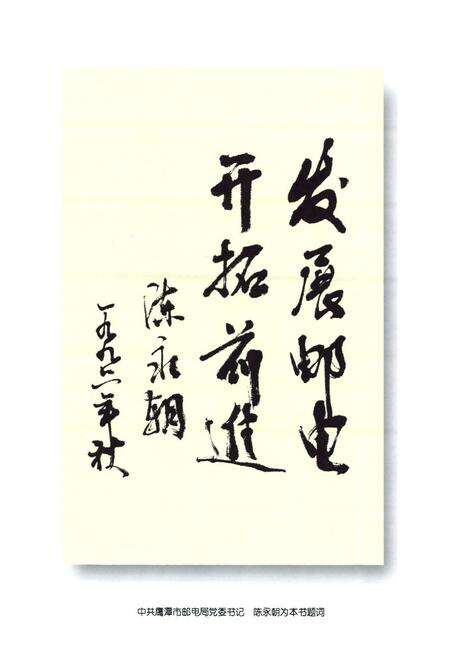 发展邮电
开拓前進
陈永朝
一九九六年秋
中共鹰潭市邮电局党委书记 陈永朝为本书题词